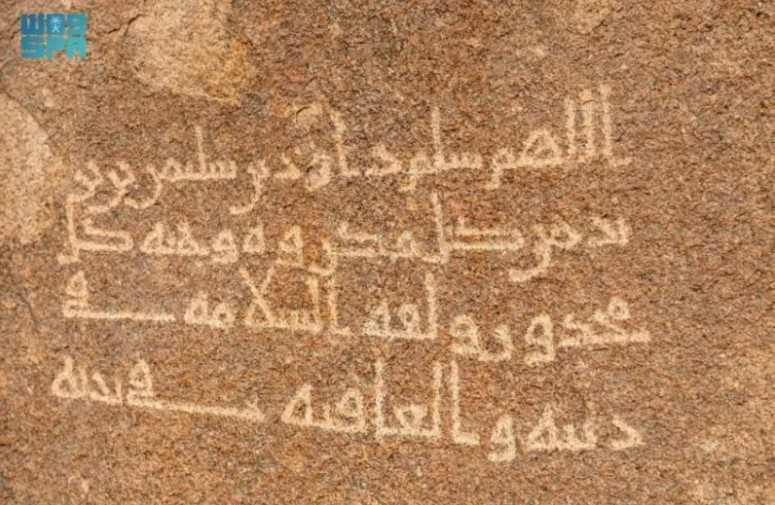 واس
SPA
اللهم سلم داود بن سليمن بن يز
يد من كل مكروه وقه كل
محذور ولقه السلامه في
دينه والعافيه في بدنه